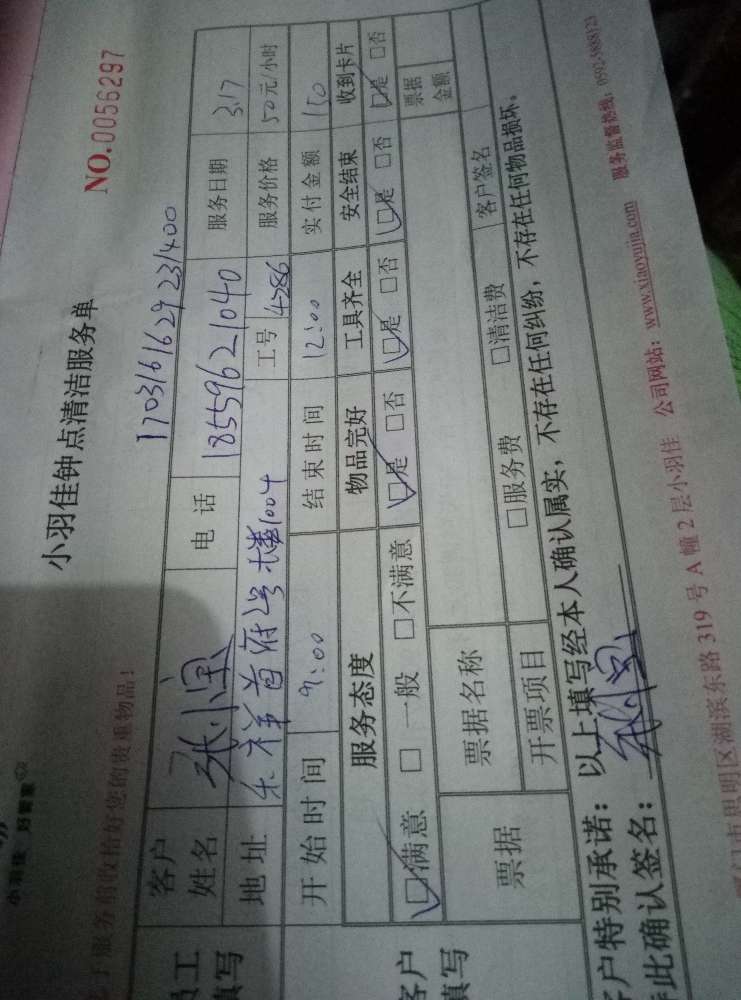 小羽佳 好管家
小羽佳钟点清洁服务单
NO.0056297
了服务前收拾好您的贵重物品！
1703161629231400
员工填写
客户姓名 张小闽 电话 18559621040 服务日期 3.17
地址 禾祥首府2号楼1004 工号 4286 服务价格 50元/小时
开始时间 9:00 结束时间 12:00 实付金额 150
客户填写
服务态度 物品完好 工具齐全 安全结束 收到卡片
☑满意 □一般 □不满意 ☑是 □否 ☑是 □否 ☑是 □否 ☑是 □否
票据 票据名称 票据金额
开票项目 □服务费 □清洁费 客户签名
客户特别承诺：以上填写经本人确认属实，不存在任何纠纷，不存在任何物品损坏。
此确认签名：
厦门市思明区湖滨东路319号A幢2层小羽佳 公司网站：www.xiaoyujia.com 服务监督热线：0592-5888123